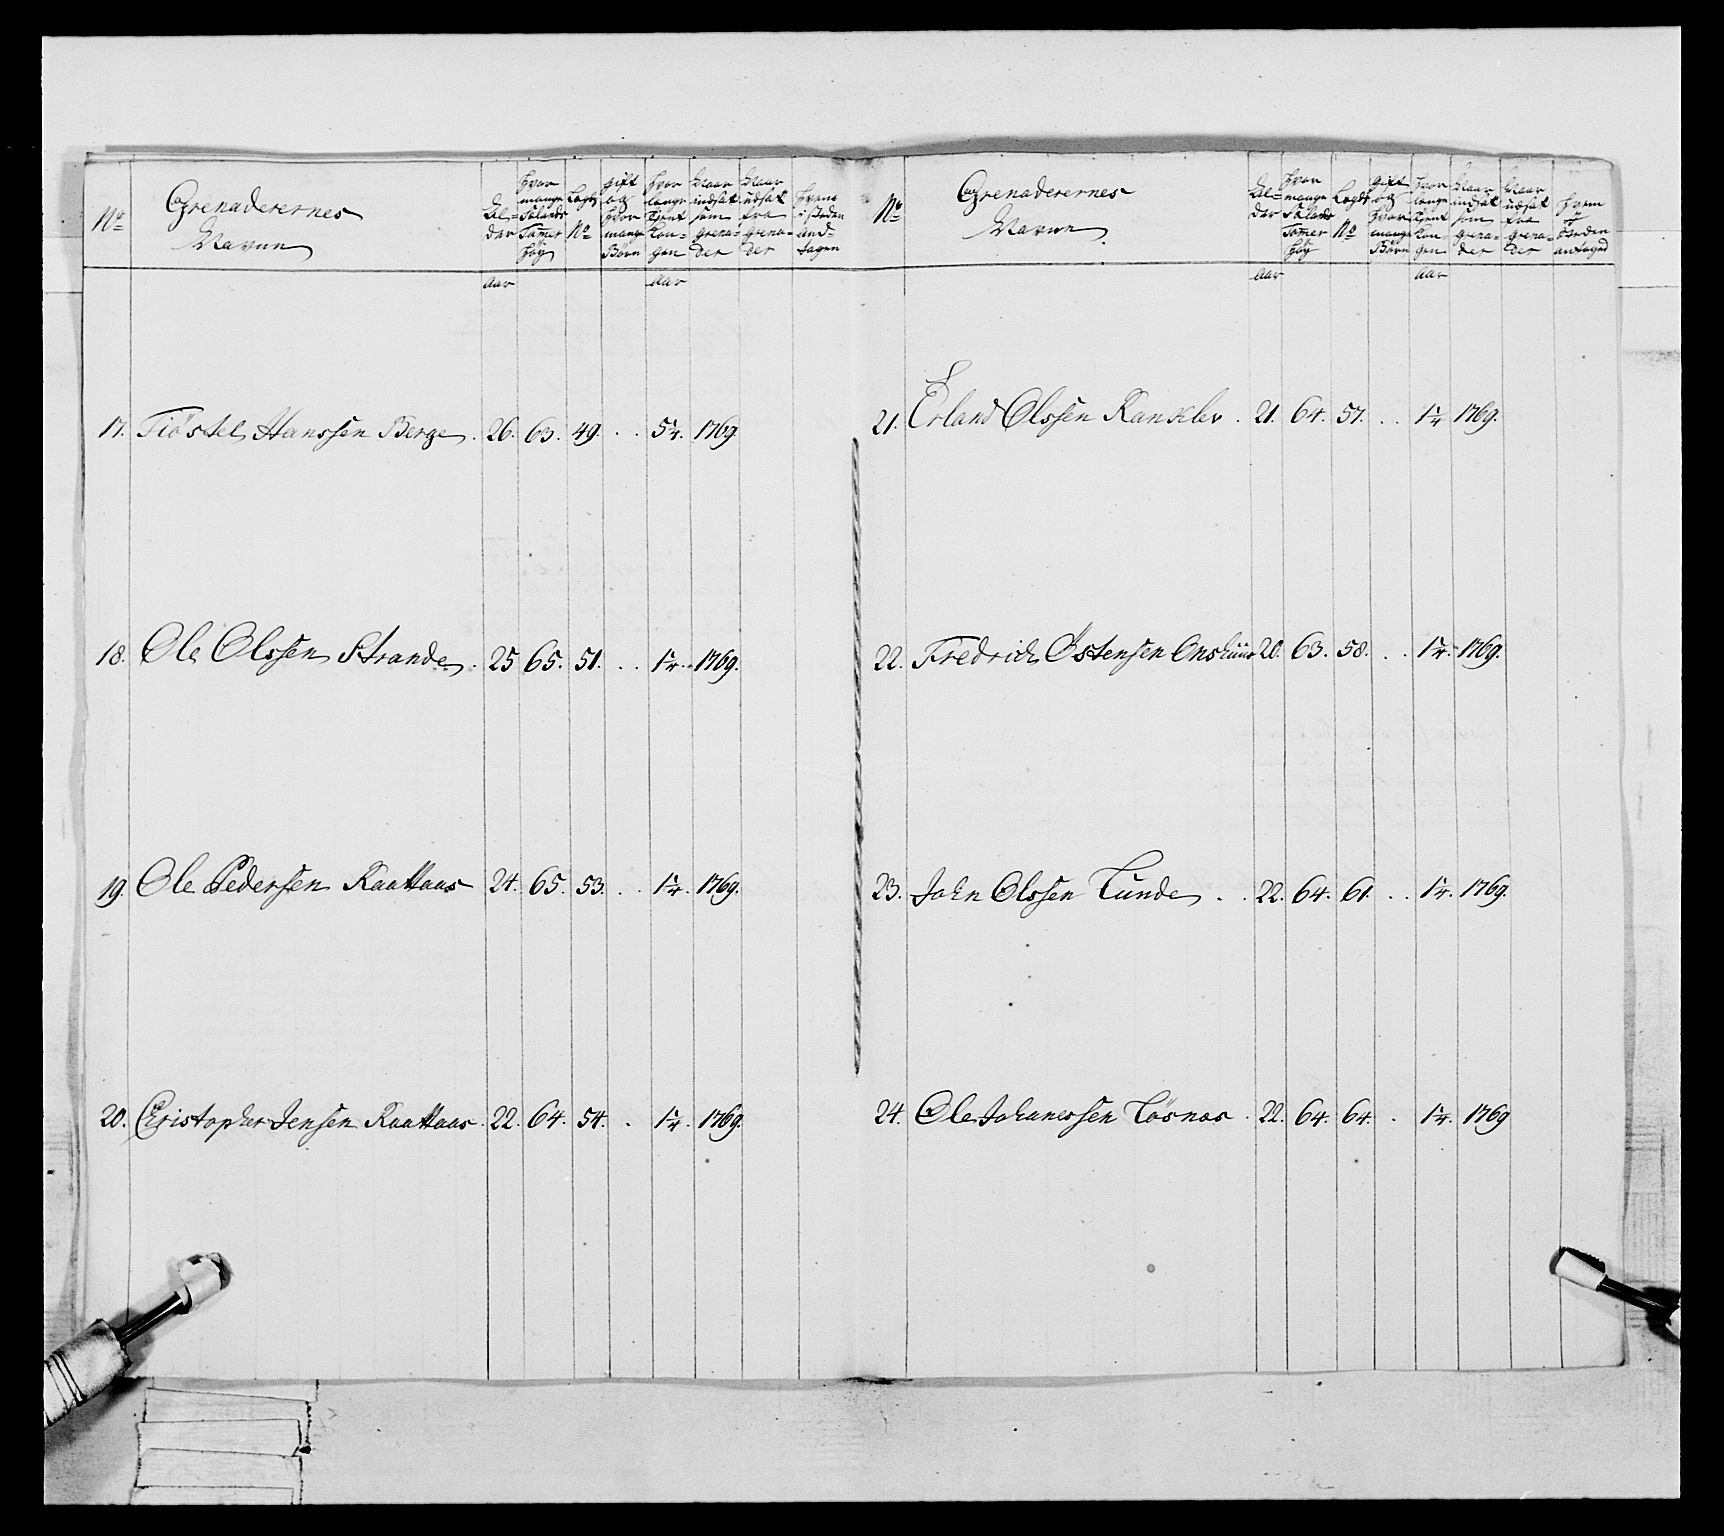 No
Grenaderernes
Navne
Al=
der
hvor
mange
Siælands
Tomer
høy
Legds
No
gift
og
hvor
mange
Børn
hvor
længe
tient
Kon=
gen
Naar
indsat
som
grena=
der
Naar
udsat
fra
grena=
der
hvem
i steden
and=
tagen
aar
aar
17. Tiöstel Hanssen Berge . 26. 63. 49. . . 5¼. 1769.
18. Ole Olssen Strande . 25 65. 51. . . 1¼. 1769.
19. Ole Pedersen Raattaas 24. 65. 53. . . 1¼. 1769.
20. Christopher Jensen Raattaas . 22. 64. 54. . 1¼. 1769.
No
Grenaderernes
Navne
Al=
der
hvor
mange
Siælands
Tomer
høy
Legds
No
gift
og
hvor
mange
Børn
hvor
længe
tient
Kon
gen
Naar
indsat
som
grena=
der
Naar
udsat
fra
grena=
der
hvem
i
steden
antaged
aar
aar
21. Erland Olssen Ranklev . 21. 64. 57. . . 1¼ 1769.
22. Fredrich Östensen Onshuus 20. 63. 58. . . 1¼. 1769.
23. John Olssen Lunde . . 22. 64. 61. . . 1¼. 1769.
24. Ole Johanessen Løsnæs . 22. 64. 64. . 1¼. 1769